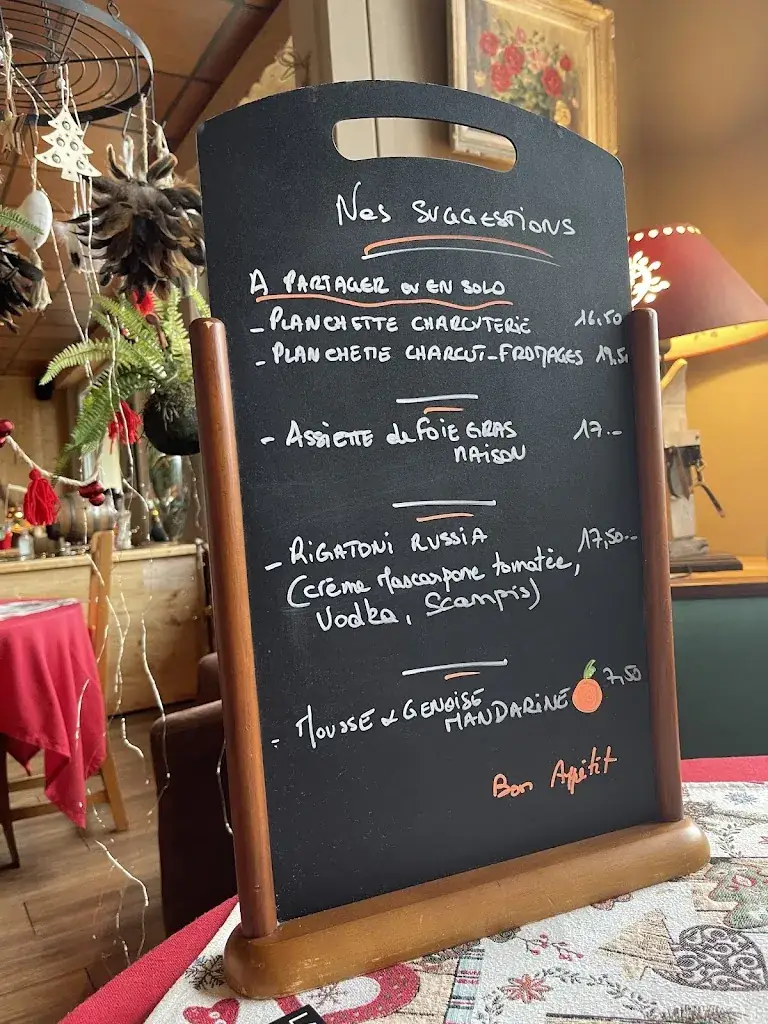 Nos SUGGESTIONS
A PARTAGER OU EN SOLO
- PLANCHETTE CHARCUTERIE 16,50
- PLANCHETTE CHARCUT-FROMAGES 19,50
- ASSIETTE de FOIE GRAS 17.-
MAISON
- RIGATONI RUSSIA 17,50.-
(crème Mascarpone tomatée,
Vodka, Scampis)
- MOUSSE & GENOISE 7,50
MANDARINE
Bon Appétit